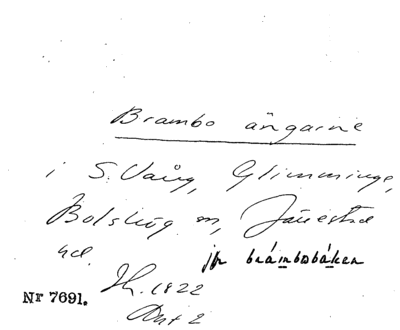 Brambo ängarne
i S. Vång, Glimminge,
Bolshög m, Järrestad
hd. jfr brámbobáken
Jh. 1822
Nr 7691.
Akt 2